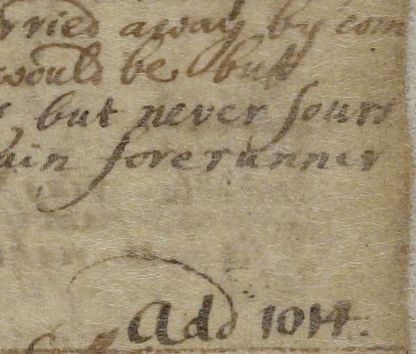 rried away by com
would be but
, but never sours
ain forerunner
Add 1014.